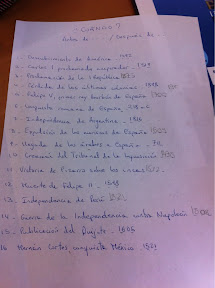 - CUÁNDO?
Antes de ... / Después de ...
1. - Descubrimiento de América 1492
2. - Carlos I proclamado emperador - 1519
3. - Proclamación de la I República 1873
4. - Pérdida de las últimas colonias 1898
5. - Felipe V, primer rey borbón de España 1700
6. - Conquista romana de España, 218 a.C
7. - Independencia de Argentina - 1816
8. - Expulsión de los moriscos de España
9. - llegada de los árabes a España - 711
10. - Creación del Tribunal de la Inquisición
11. - Victoria de Pizarro sobre los incas
12. - Muerte de Felipe II 1598
13. - Independencia de Perú 1821
14. - Guerra de la Independencia contra Napoleón
15. - Publicación del Quijote - 1605
16. Hernán Cortés conquista México - 1521